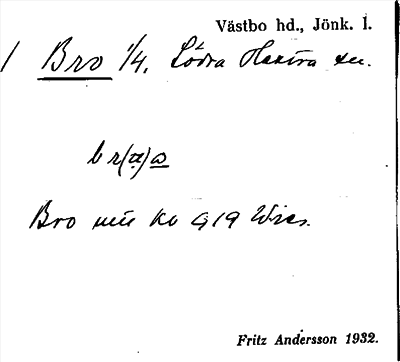 Västbo hd., Jönk. l.
1 Bro 1/4. Södra Hestra sn.
br(a)o
Bro
Fritz Andersson 1932.